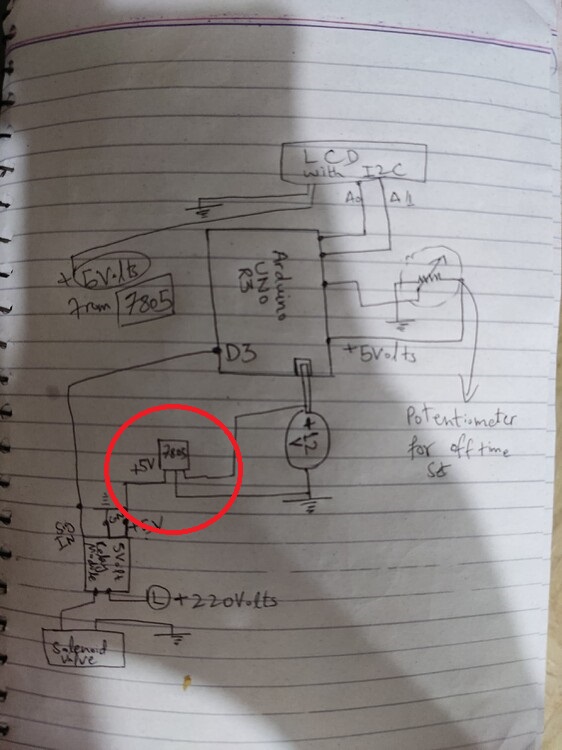 LCD
with I2C
A0 A1
+5Volts
from 7805
Arduino
UNO
R3
D3
+5Volts
Potentiometer
for off time
Set
+12
V
7805
+5V
+5V
5Volts
Relay
Module
L +220Volts
Solenoid
valve